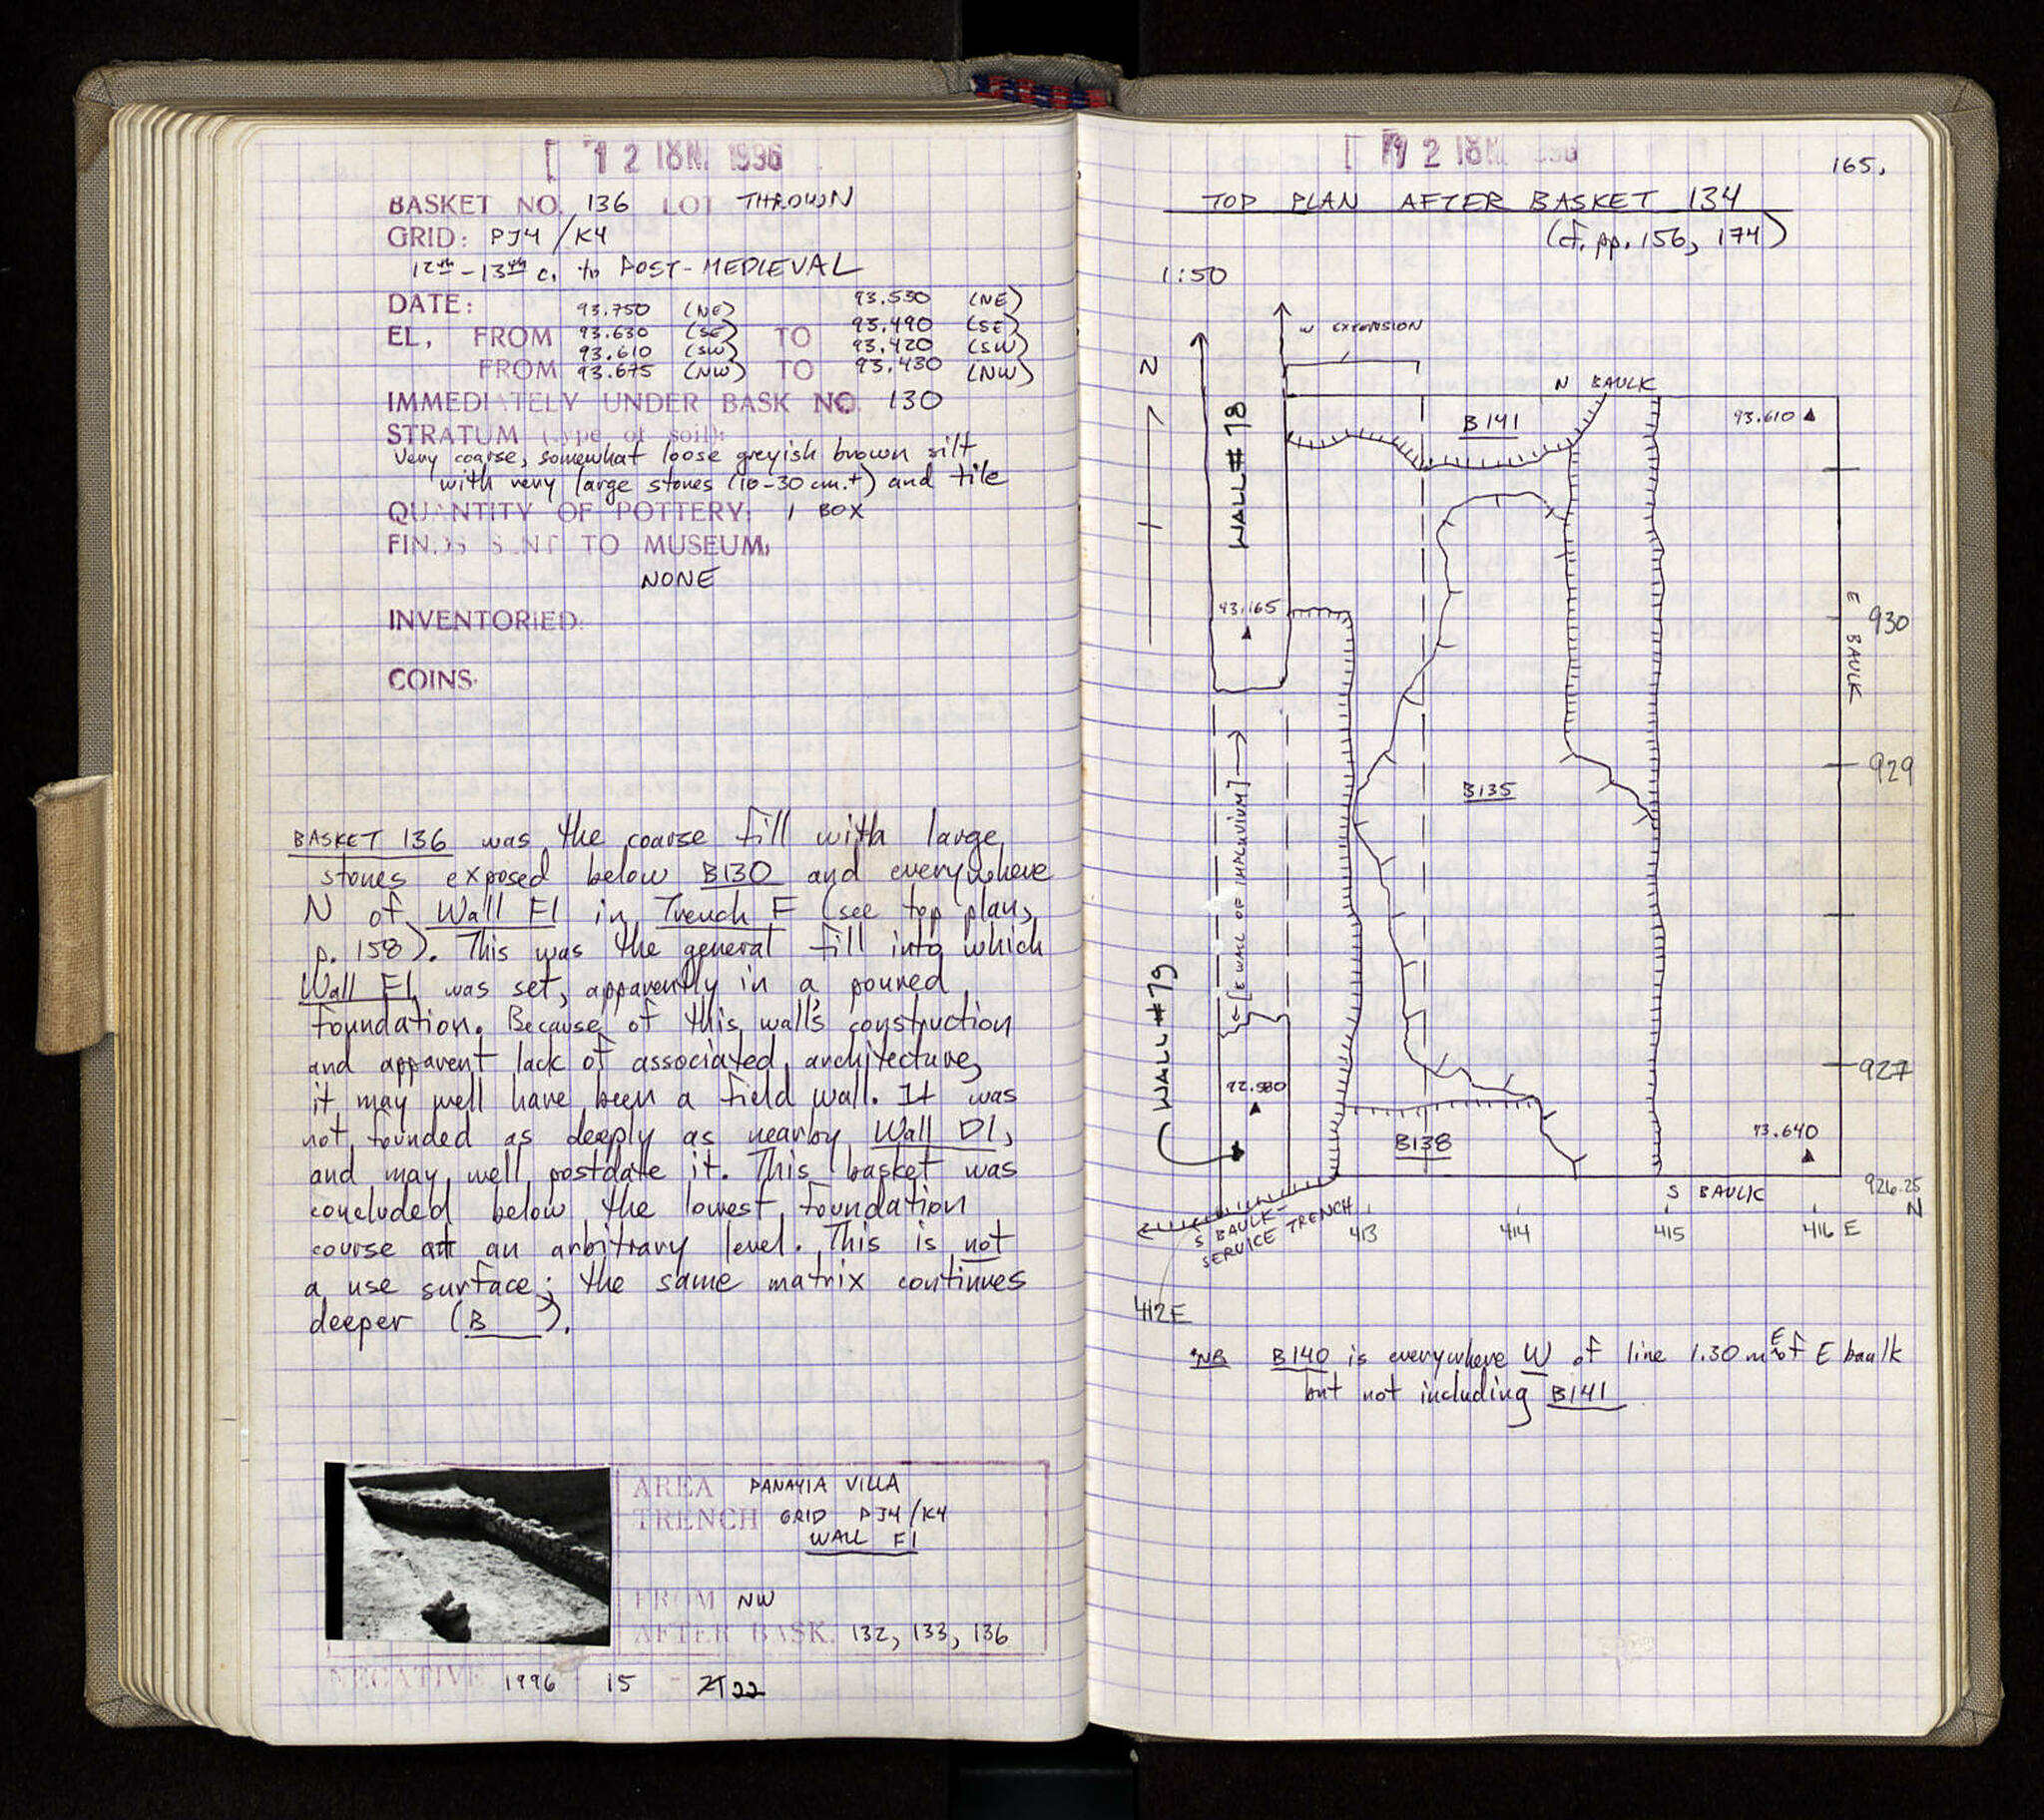 12 IUN. 1996
BASKET NO. 136 LOT THROWN
GRID: PJ4/K4
12th-13th c. to POST-MEDIEVAL
DATE:
EL, FROM 93.750 (NE) TO 93.530 (NE)
93.630 (SE) 93.490 (SE)
93.610 (SW) 93.420 (SW)
FROM 93.675 (NW) TO 93.430 (NW)
IMMEDIATELY UNDER BASK NO. 130
STRATUM (type of soil):
very coarse, somewhat loose greyish brown silt
with very large stones (10-30 cm.+) and tile
QUANTITY OF POTTERY: 1 BOX
FINDS SENT TO MUSEUM,
NONE
INVENTORIED:
COINS.
BASKET 136 was the coarse fill with large
stones exposed below B130 and everywhere
N of Wall F1 in Trench F (see top plan,
p. 158). This was the general fill into which
Wall F1 was set, apparently in a poured
foundation. Because of this wall's construction
and apparent lack of associated architecture,
it may well have been a field wall. It was
not founded as deeply as nearby Wall D1,
and may well postdate it. This basket was
concluded below the lowest foundation
course at an arbitrary level. This is not
a use surface; the same matrix continues
deeper (B   ).
AREA PANAYIA VILLA
TRENCH GRID PJ4/K4
WALL F1
FROM NW
AFTER BASK. 132, 133, 136
NEGATIVE 1996 - 15 - 22
12 IUN. 1996
165.
TOP PLAN AFTER BASKET 134
(cf. pp. 156, 174)
1:50
W EXTENSION
N
N BAULK
WALL #78
B141
93.610
93.165
930
E BAULK
929
B135
[E WALL OF IMPLUVIUM]
WALL #79
927
92.980
B138
93.640
926.25
N
S BAULK
S BAULK-
SERVICE TRENCH
413
414
415
416 E
412E
*NB B140 is everywhere W of line 1.30 m E of E baulk
but not including B141